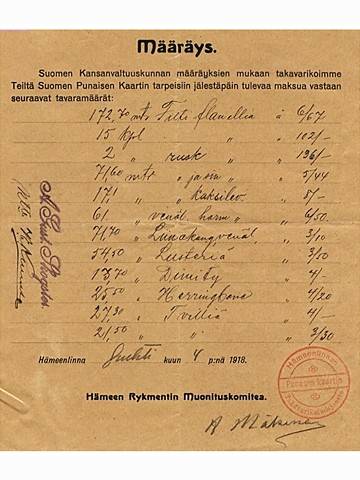 Määräys.
Suomen Kansanvaltuuskunnan määräyksien mukaan takavarikoimme
Teiltä Suomen Punaisen Kaartin tarpeisiin jälestäpäin tulevaa maksua vastaan
seuraavat tavaramäärät:
172,70 mtr Fille flanellia á 6/67
15 kpl „ „ 102/-
2 „ rusk „ 196/-
71,60 mtr „ „ 5/44
17,1 „ kaksilev. „ 8/-
61 „ venäl. „ 6/50
71,70 „ „ 3/10
54,50 „ Lusteria „ 3/50
13,70 „ Dimity „ 4/-
25,50 „ Herringbone „ 4/20
27,30 „ Tvilliä „ 4/-
21,50 „ „ „ 3/30
Hämeenlinna Huhti kuun 4 p:nä 1918.
Hämeen Rykmentin Muonituskomitea.
Hämeenlinnan
Punasen kaartin